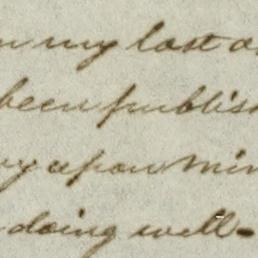 my last
been publis
upon Min
doing well-